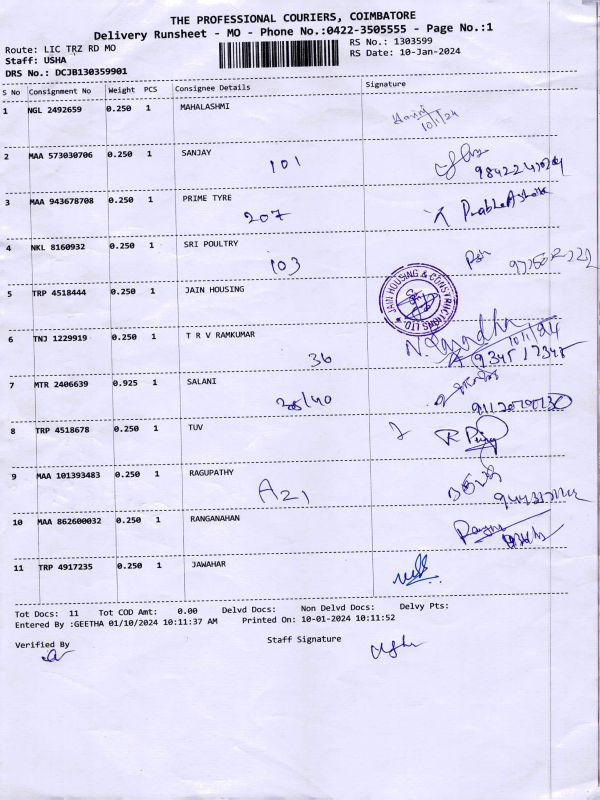 THE PROFESSIONAL COURIERS, COIMBATORE
Delivery Runsheet - MO - Phone No.:0422-3505555 - Page No.:1
Route: LIC TRZ RD MO RS No.: 1303599
Staff: USHA RS Date: 10-Jan-2024
DRS No.: DCJB130359901
S No Consignment No Weight PCS Consignee Details Signature
1 NGL 2492659 0.250 1 MAHALASHMI
10/1/24
2 MAA 573030706 0.250 1 SANJAY
101
3 MAA 943678708 0.250 1 PRIME TYRE
207
4 NKL 8160932 0.250 1 SRI POULTRY
103
5 TRP 4518444 0.250 1 JAIN HOUSING
JAIN HOUSING & CONSTRUCTIONS LTD.
6 TNJ 1229919 0.250 1 T R V RAMKUMAR
10/1/24
36
7 MTR 2406639 0.925 1 SALANI
8 TRP 4518678 0.250 1 TUV
9 MAA 101393483 0.250 1 RAGUPATHY
A21
10 MAA 862600032 0.250 1 RANGANAHAN
11 TRP 4917235 0.250 1 JAWAHAR
Tot Docs: 11 Tot COD Amt: 0.00 Delvd Docs: Non Delvd Docs: Delvy Pts:
Entered By :GEETHA 01/10/2024 10:11:37 AM Printed On: 10-01-2024 10:11:52
Verified By Staff Signature